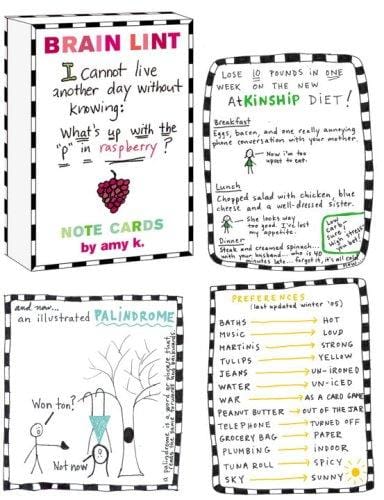 BRAIN LINT
I cannot live
another day without
knowing:
What's up with the
"p" in raspberry?
NOTE CARDS
by amy k.
LOSE 10 POUNDS IN ONE
WEEK ON THE NEW
AtKINSHIP DIET!
Breakfast
Eggs, bacon, and one really annoying
phone conversation with your mother.
Now i'm too
upset to eat.
Lunch
Chopped salad with chicken, blue
cheese and a well-dressed sister.
She looks way
too good. I've lost
my appetite.
Dinner
Steak and creamed spinach...
with your husband... who is 40
minutes late... forget it, it's all cold
now...
Low
carb,
sure. Stress?
High
you bet!
and now...
an illustrated PALINDROME
Won ton?
Not now
a palindrome is a word or phrase that
reads the same forwards and backwards.
PREFERENCES
(last updated winter '05)
BATHS HOT
MUSIC LOUD
MARTINIS STRONG
TULIPS YELLOW
JEANS UN-IRONED
WATER UN-ICED
WAR AS A CARD GAME
PEANUT BUTTER OUT OF THE JAR
TELEPHONE TURNED OFF
GROCERY BAG PAPER
PLUMBING INDOOR
TUNA ROLL SPICY
SKY SUNNY